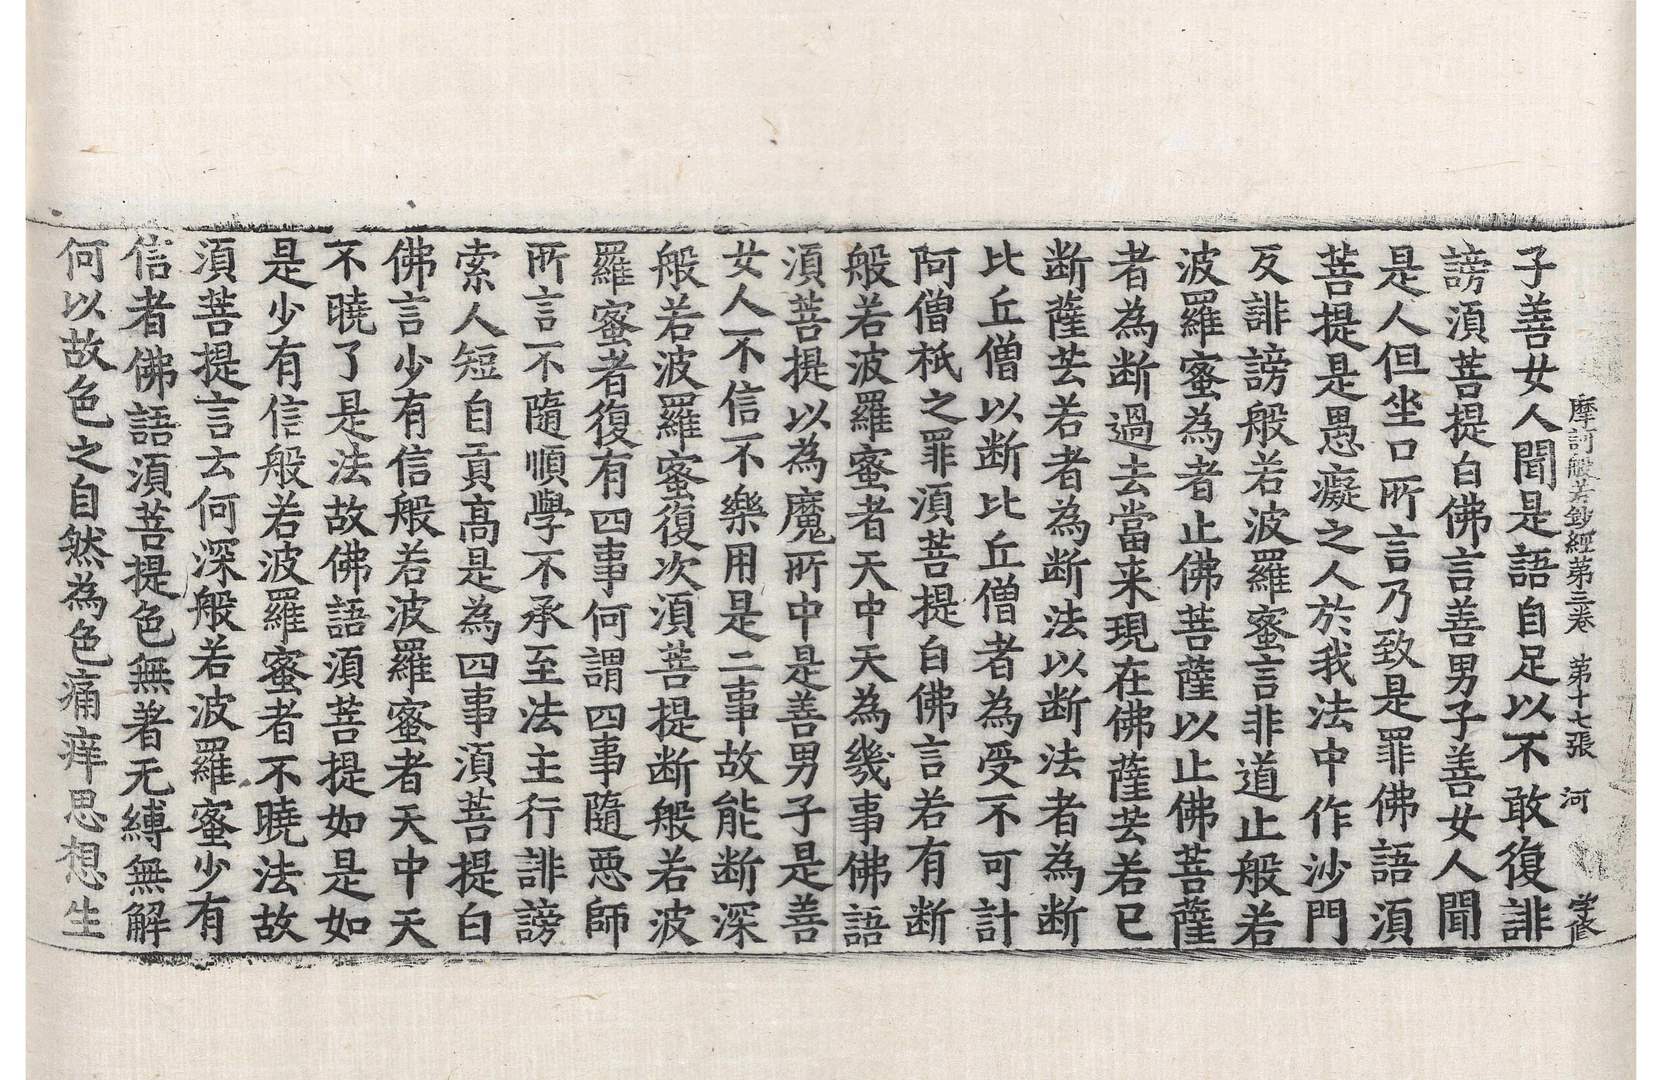 摩訶般若鈔經第三卷 第十七張 河
子善女人聞是語自足以不敢復誹
謗湏菩提白佛言善男子善女人聞
是人但坐口所言乃致是罪佛語湏
菩提是愚癡之人於我法中作沙門
反誹謗般若波羅蜜言非道止般若
波羅蜜為者止佛菩薩以止佛菩薩
者為断過去當来現在佛薩芸若已
断薩芸若者為断法以断法者為断
比丘僧以断比丘僧者為受不可計
阿僧祇之罪湏菩提白佛言若有断
般若波羅蜜者天中天為幾事佛語
湏菩提以為魔所中是善男子是善
女人不信不樂用是二事故能断深
般若波羅蜜復次湏菩提断般若波
羅蜜者復有四事何謂四事隨悪師
所言不隨順學不承至法主行誹謗
索人短自貢高是為四事湏菩提白
佛言少有信般若波羅蜜者天中天
不曉了是法故佛語湏菩提如是如
是少有信般若波羅蜜者不曉法故
湏菩提言云何深般若波羅蜜少有
信者佛語湏菩提色無著无縛無解
何以故色之自然為色痛痒思想生